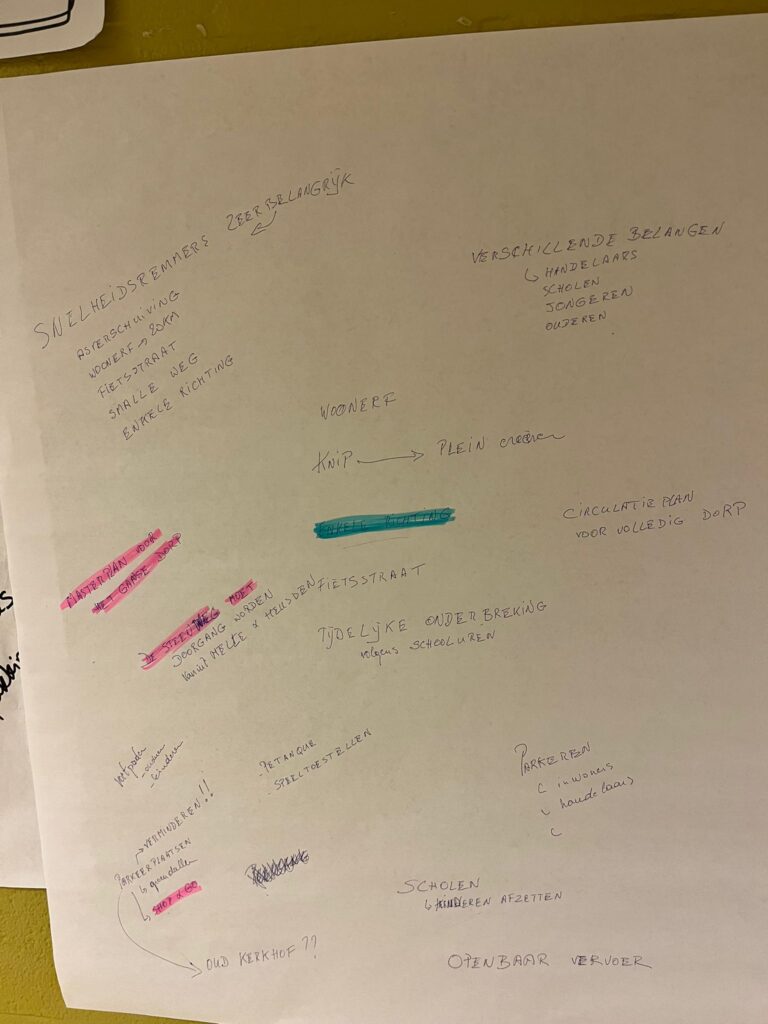 SNELHEIDSREMMERS ZEER BELANGRIJK
ASVERSCHUIVING
WOONERF → 20KM
FIETSSTRAAT
SMALLE WEG
ENKELE RICHTING
VERSCHILLENDE BELANGEN
↳ HANDELAARS
SCHOLEN
JONGEREN
OUDEREN
WOONERF
KNIP → PLEIN creëren
ENKELE RICHTING
CIRCULATIEPLAN
VOOR VOLLEDIG DORP
MASTERPLAN VOOR
HET GANSE DORP
DE STEENWEG MOET
DOORGANG WORDEN
vanuit MELLE & HEUSDEN
FIETSSTRAAT
TIJDELIJKE ONDERBREKING
volgens SCHOOLUREN
voetpaden
- ouderen
- kinderen
- PETANQUE
- SPEELTOESTELLEN
PARKEREN
inwoners
handelaars
→ VERMINDEREN!!
PARKEERPLAATSEN
↳
↳ SHOP & GO
SCHOLEN
↳ KINDEREN AFZETTEN
OUD KERKHOF??
OPENBAAR VERVOER